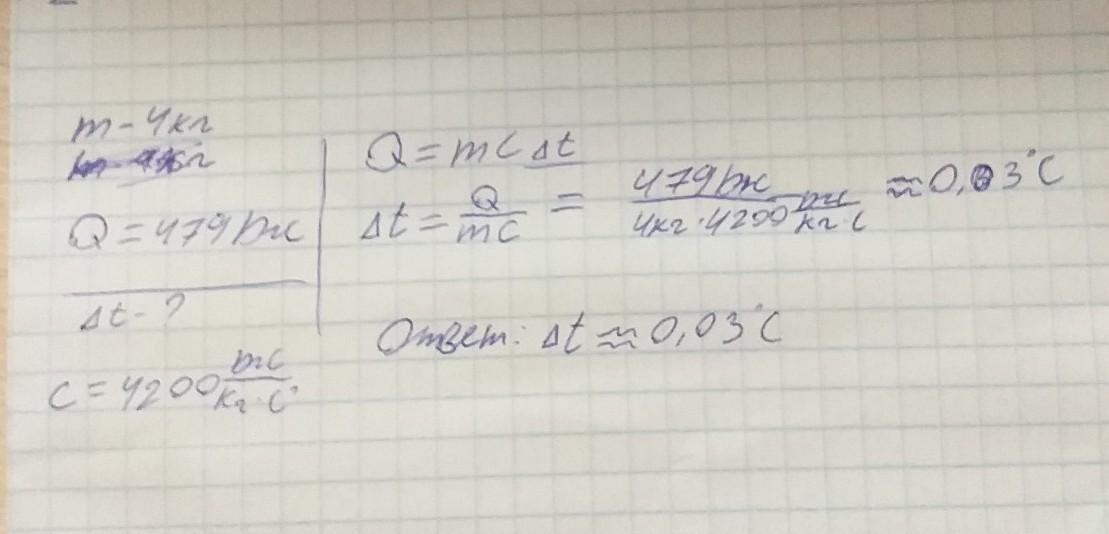 m - 4кг
Q = 479 Дж
Δt - ?
c = 4200 Дж/кг·C°
Q = mcΔt
Δt = Q/mc = 479Дж/4кг·4200 Дж/кг·C ≈ 0,03°C
Ответ: Δt ≈ 0,03°C